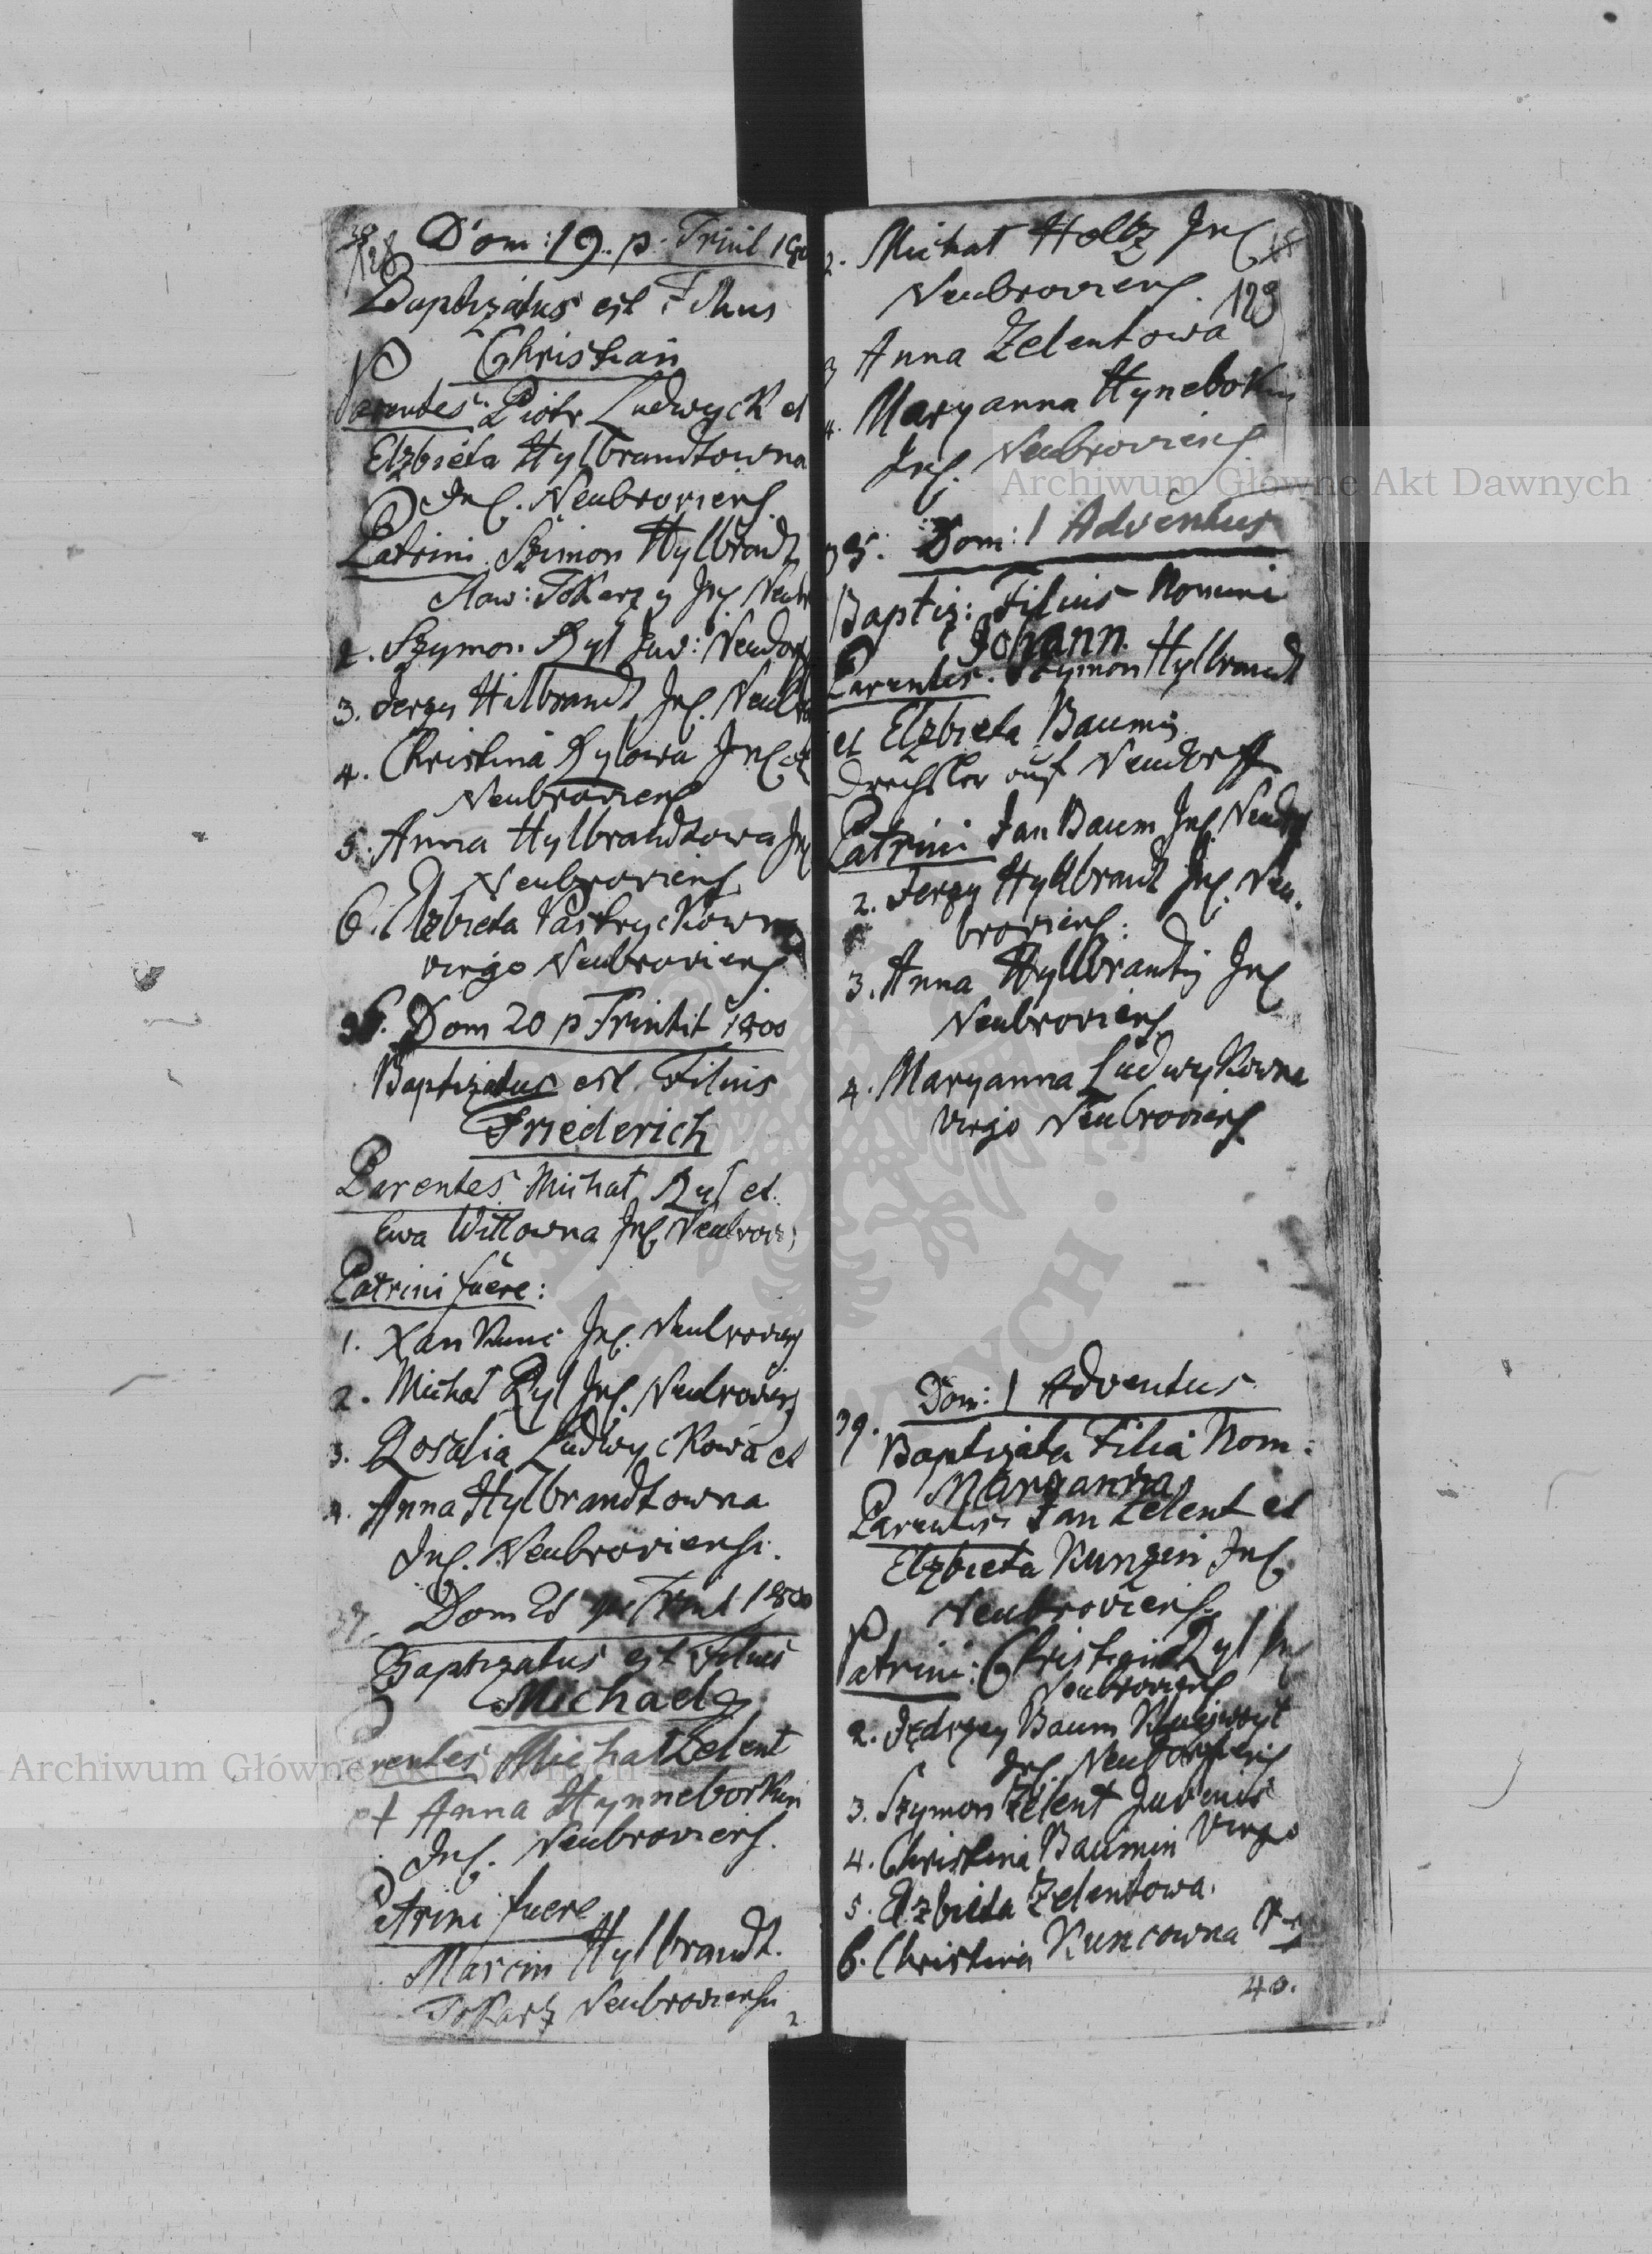 128 Dom: 19. p. Trinit 180
Baptizatus est Filius
Christian
Parentes: Piotr Ludwyck et
Elzbieta Hylbrandtowna
Inq. Neubroviens.
Patrini Szimon Hylbrandt
Tokarz y Inq Neub
2. Szymon Ryl Juv: Neudorf
3. Jerzy Hilbrandt Inq. Neub
4. Christina Rylowa Inq
Neubroviens
5. Anna Hylbrandtowa Inq
Neubroviens.
6. Elzbieta Pastryckowna
virgo Neubroviens.
36. Dom 20 p Trinitit 1800
Baptizatus est Filius
Friederich
Parentes Michał Ryl et
Ewa Wittowna Inq Neubrov:
Patrini fuere:
1. Xan Kunc Inq. Neubroviens
2. Michał Ryl Inq. Neubroviens
3. Rosalia Ludwyckowa et
4. Anna Hylbrandtowna
Inq. Neubroviensi.
37. Dom 21 Trinit 1800
Baptizatus est Filius
Michael
Parentes Michał Zelent
et Anna Hynneborkin
Inq. Neubroviens.
Patrini fuere
Marcin Hylbrandt.
Tokarz Neubroviensi
2
2. Michał Holtz Inq
Neubroviens. 129
3 Anna Zelentowa
4. Maryanna Hynebokin
Inq. Neubroviens
Dom: 1 Adventus
Baptiz: Filius Nomine
Johann
Parentes. Szymon Hylbrandt
et Elzbieta Baumin
Drechsler auf Neudorff
Patrini Jan Baum Inq. Neudorf
2. Jerzy Hyllbrandt Inq. Neu-
broviens:
3. Anna Hyllbrandtin Inq
Neubroviens
4. Maryanna Ludwykowna
virgo Neubroviens
Dom: 1 Adventus
39.
Baptizata Filia Nom:
Maryanna
Parentes Jan Zelent et
Elzbieta Kunzin Inq.
Neubroviens.
Patrini: Christian Ryl Inq
Neubroviens
2. Jędrzey Baum
Inq. Neudorfiens
3. Szymon Zelent Juvenis
4. Christina Baumin Virgo
5. Elzbieta Zelentowa.
6. Christina Kuncowna
40.
Archiwum Główne Akt Dawnych
Archiwum Główne Akt Dawnych